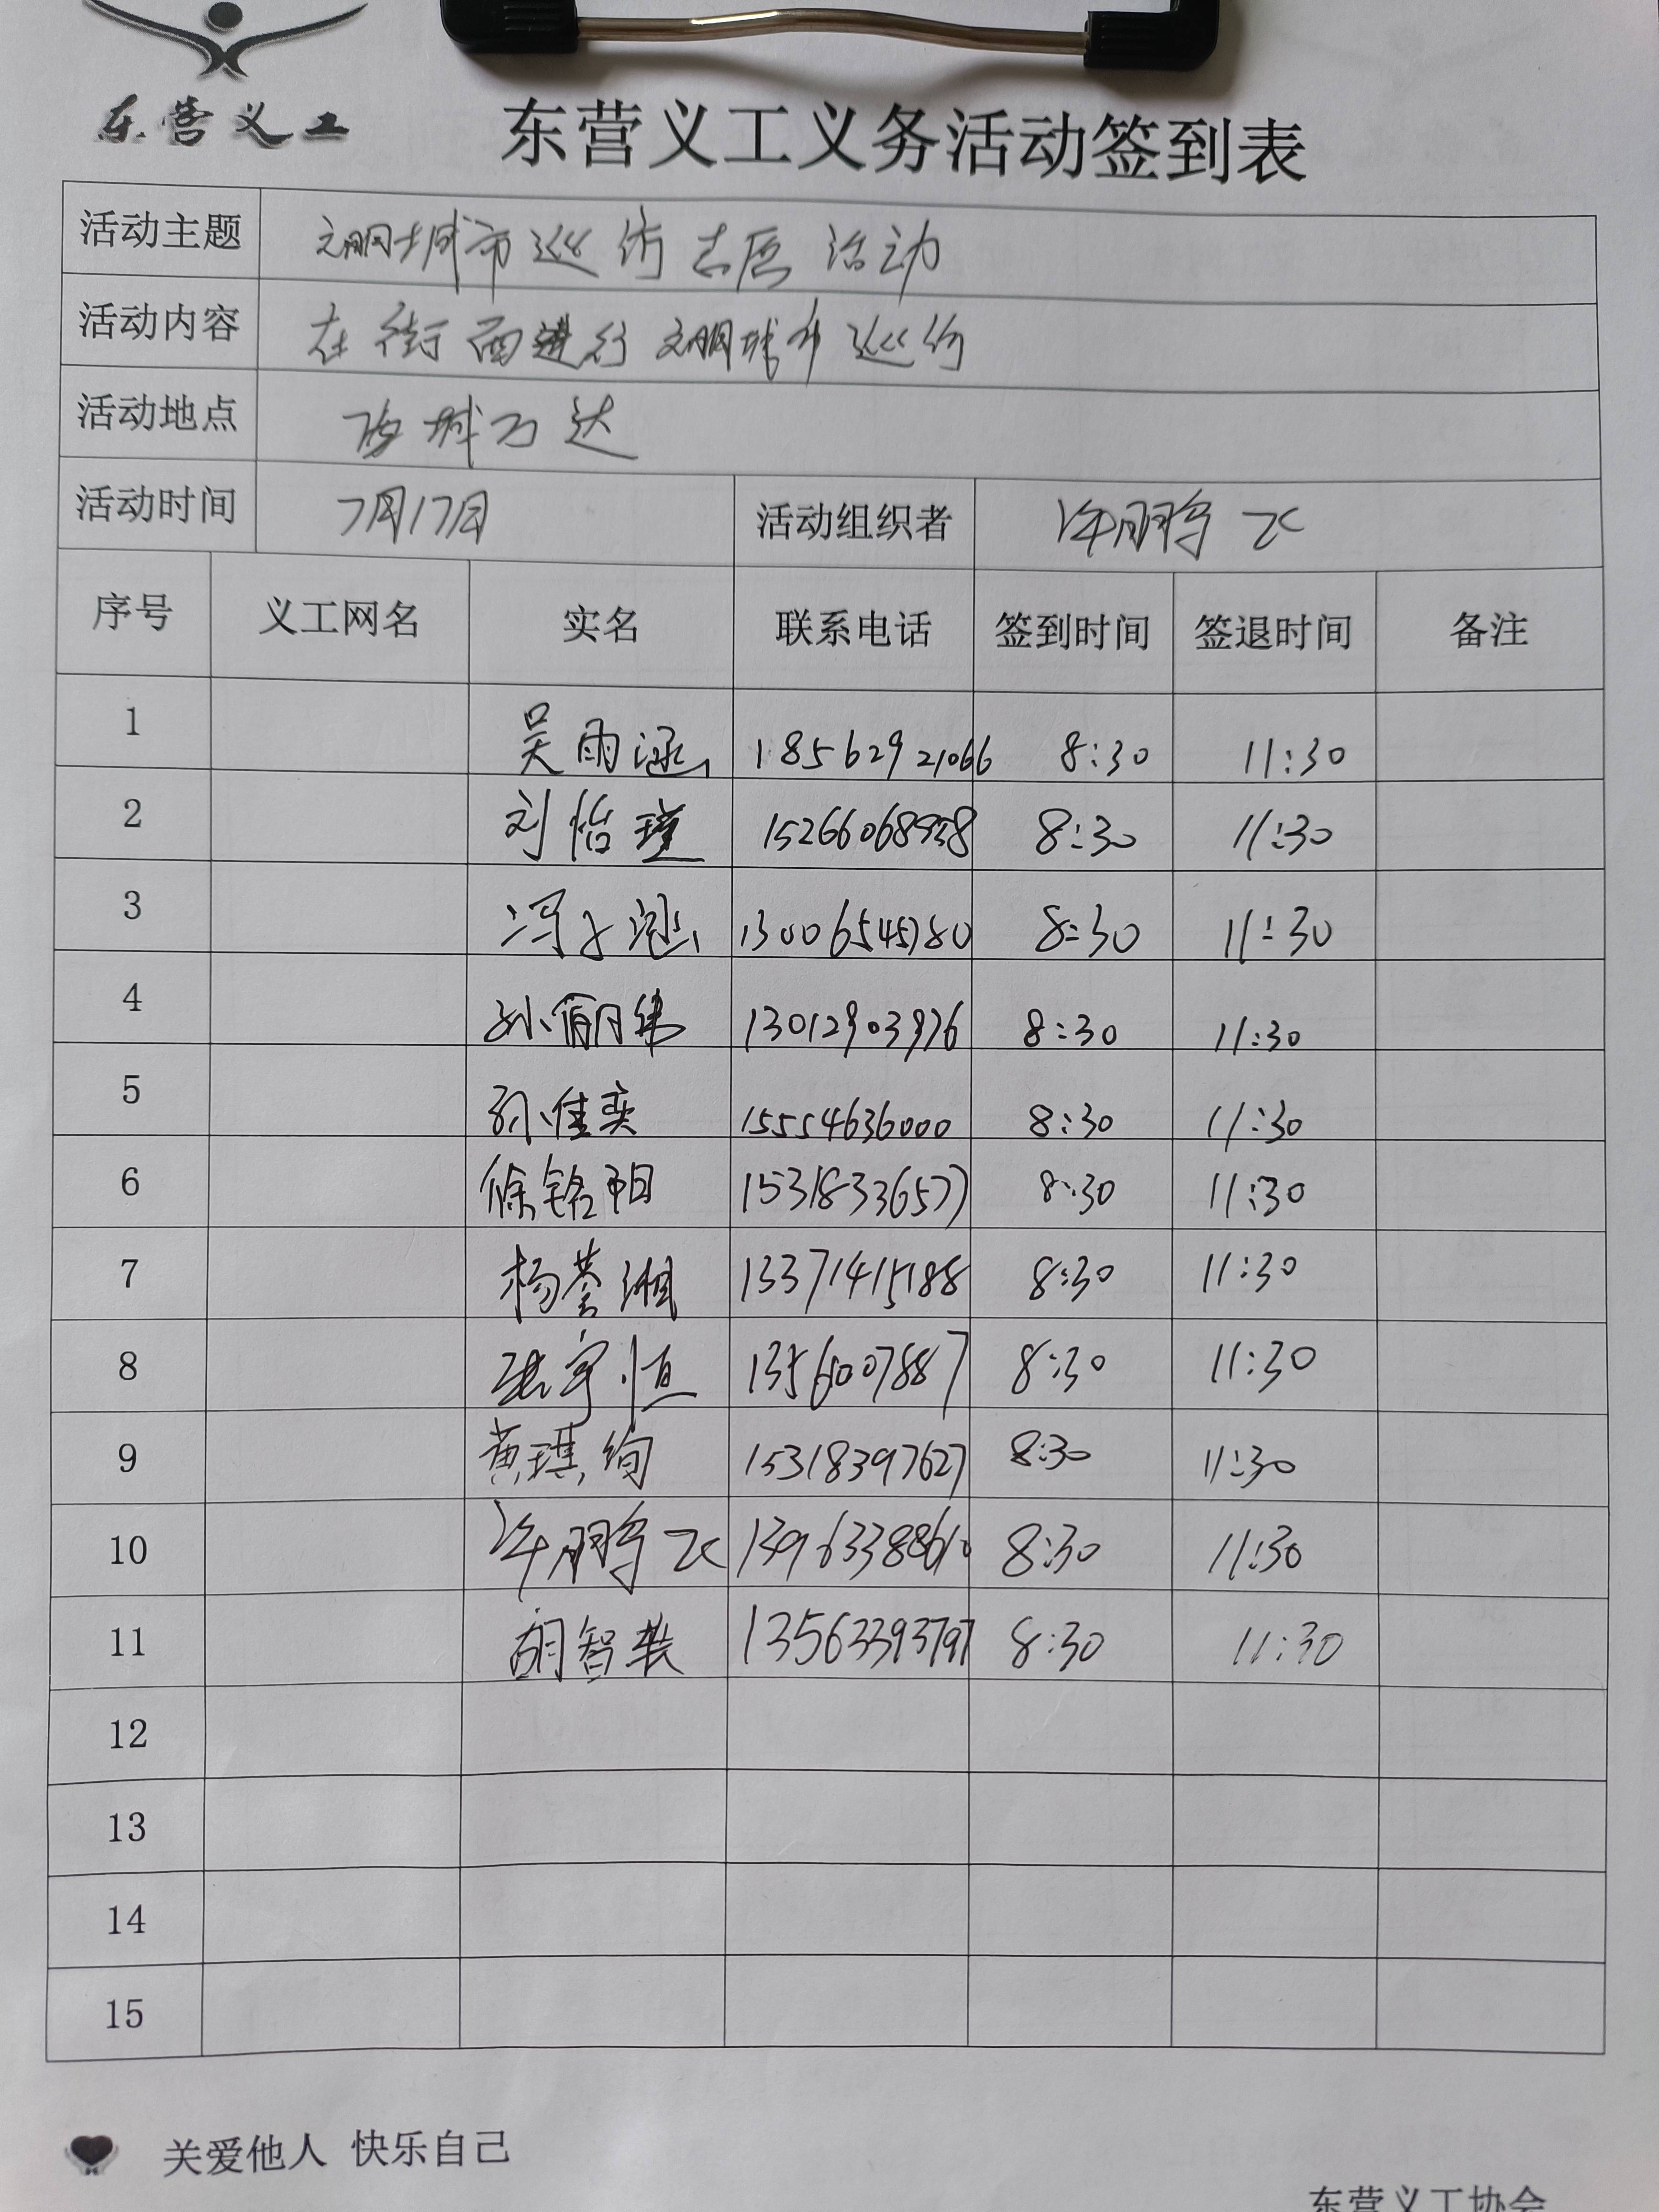 东营义工
东营义工义务活动签到表
活动主题 文明城市巡访志愿活动
活动内容 在街面进行文明城市巡访
活动地点 西城万达
活动时间 7月17日 活动组织者 许鹏飞
序号 义工网名 实名 联系电话 签到时间 签退时间 备注
1 吴雨涵 18562921066 8:30 11:30
2 刘怡瑾 15266068958 8:30 11:30
3 冯子涵 13006545780 8:30 11:30
4 孙丽纬 13012903976 8:30 11:30
5 孙佳奕 15554636000 8:30 11:30
6 徐铭阳 15318336577 8:30 11:30
7 杨蓥湘 13371415188 8:30 11:30
8 张宇恒 13561007887 8:30 11:30
9 黄琪绚 15318397627 8:30 11:30
10 许鹏飞 8:30 11:30
11 胡智装 13563393797 8:30 11:30
12
13
14
15
关爱他人 快乐自己
东营义工协会